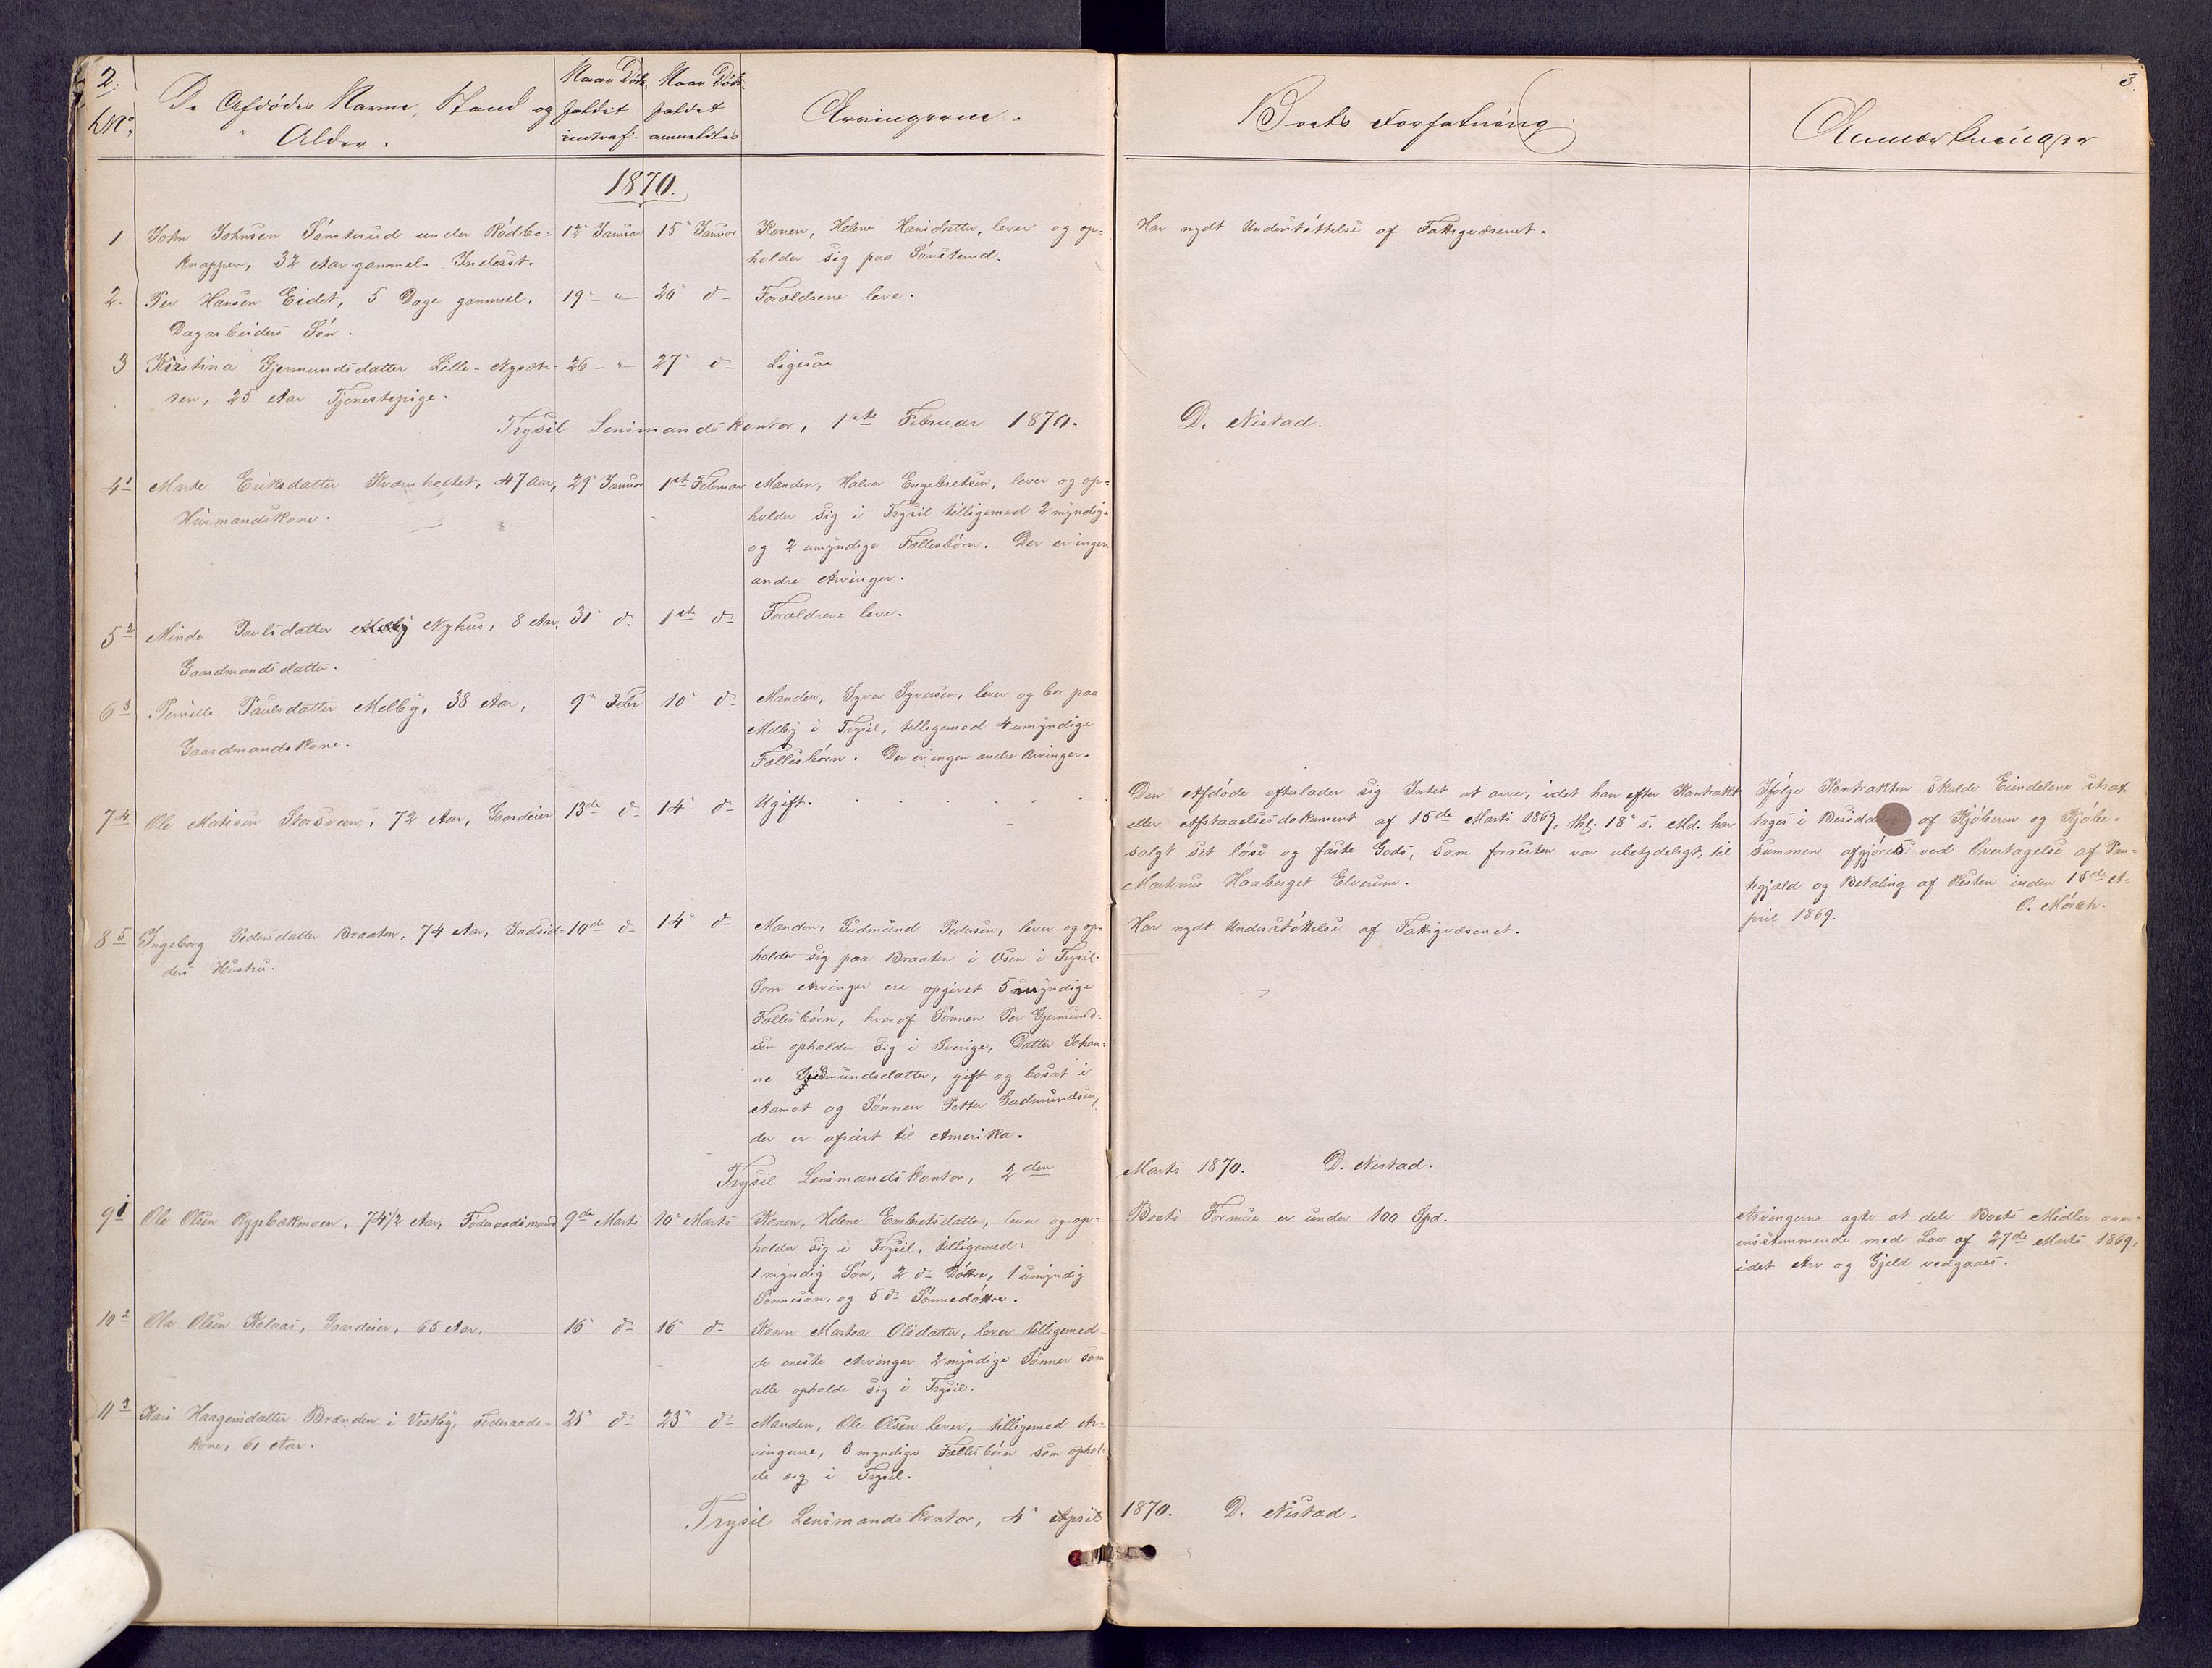 2.
No.
De Afdødes Navne, Stand og
Alder.
Naar Døds-
faldet
indtraf.
Naar Døds-
faldet
anmeldtes
Arvingerne.
1870.
1 John Johnsen Sønsterud under Rødbe- 12" Januar 15" Januar Konen, Helene Hansdatter, lever og op-
knappen, 32 Aar gammel. Inderst. holder sig paa Sønsterud.
2. Per Hansen Eidet, 5 Dage gammel. 19" - " - 20" d- Forældrene leve.
Dagarbeiders Søn.
3 Kristina Gjermundsdatter Lille-Nysæte- 26 - " - 27" d- Ligesaa
ren, 25 Aar Tjenestepige.
Trysil Lensmandskontor, 1ste Februar 1870.
4 1 Marte Eriksdatter Kværnholtet, 47 Aar, 29" Januar 1ste Februar Manden, Halvor Engebretsen, lever og op-
Husmandskone. holder sig i Trysil tilligemed 2 myndige
og 2 umyndige Fællesbørn. Der er ingen
andre Arvinger.
5 2 Minde Paulsdatter Nyhus, 8 Aar. 31" d- 1ste d- Forældrene leve.
Gaardmandsdatter.
6 3 Pernille Paulsdatter Melby, 38 Aar, 9" Febr 10" d- Manden, Syver Syversen, lever og bor paa
Gaardmandskone. Melby i Trysil, tilligemed 4 umyndige
Fællesbørn. Der er ingen andre Arvinger.
7 4 Ole Matisen Storsveen, 72 Aar, Gaardeier 13de d- 14" d- Ugift.
8 5 Ingeborg Pedersdatter Braaten, 74 Aar, Indsid- 10de d- 14" d- Manden, Gudmund Pedersen, lever og op-
ders Hustru. holder sig paa Braaten i Osen i Trysil.
Som Arvinger ere opgivet 5 myndige
Fællesbørn, hvoraf Sønnen Per Gjermund-
sen opholder sig i Sverige, Datter Johan-
ne Gudmundsdatter, gift og bosat i
Aamot og Sønnen Petter Gudmundsen,
der er afreist til Amerika.
Trysil Lensmandskontor, 2den
9 1 Ole Olsen Rypbækmoen, 74 1/2 Aar, Føderaadsmand 9de Marts 10" Marts Konen, Helene Embretsdatter, lever og op-
holder sig i Trysil, tilligemed:
1 myndig Søn, 2 d- Døttre, 1 umyndig
Sønnesøn, og 5 d- Sønnedøttre.
10 2 Ole Olsen Kolaas, Gaardeier, 65 Aar. 16" d- 16" d- Konen Martea Olsdatter, lever tilligemed
de eneste Arvinger 2 myndige Sønner som
alle opholde sig i Trysil.
11 3 Kari Haagensdatter Brænden i Vestby, Føderaads- 21" d- 23" d- Manden, Ole Olsen lever, tilligemed Ar-
kone, 61 Aar. vingerne, 3 myndige Fællesbørn som ophol-
de sig i Trysil.
Trysil Lensmandskontor, 4" April
3.
Boets Forfatning.
Anmærkninger
Har nydt Understøttelse af Fattigvæsenet.
D. Nistad.
Den Afdøde efterlader sig Intet at arve, idet han efter Kontrakt
eller Afstaaelsesdokument af 15de Marts 1869, thl. 18" s. Md. har
solgt sit løse og faste Gods, som forresten var ubetydeligt, til
Martinus Haaberget Elverum.
Ifølge Kontrakten skulde Eiendelene strax
tages i af Kjøberen og Kjøbe-
summen afgjøres ved Overtagelse af Pan-
tegjæld og Betaling af Resten inden 15de A-
pril 1869. O. Mørch.
Har nydt Understøttelse af Fattigvæsenet.
Marts 1870. D. Nistad.
Boets Formue er under 100 Spd.
Arvingerne agte at dele Boets Midler over-
ensstemmende med Lov af 27de Marts 1869,
idet Arv og Gjeld vedgaaes.
1870. D. Nistad.